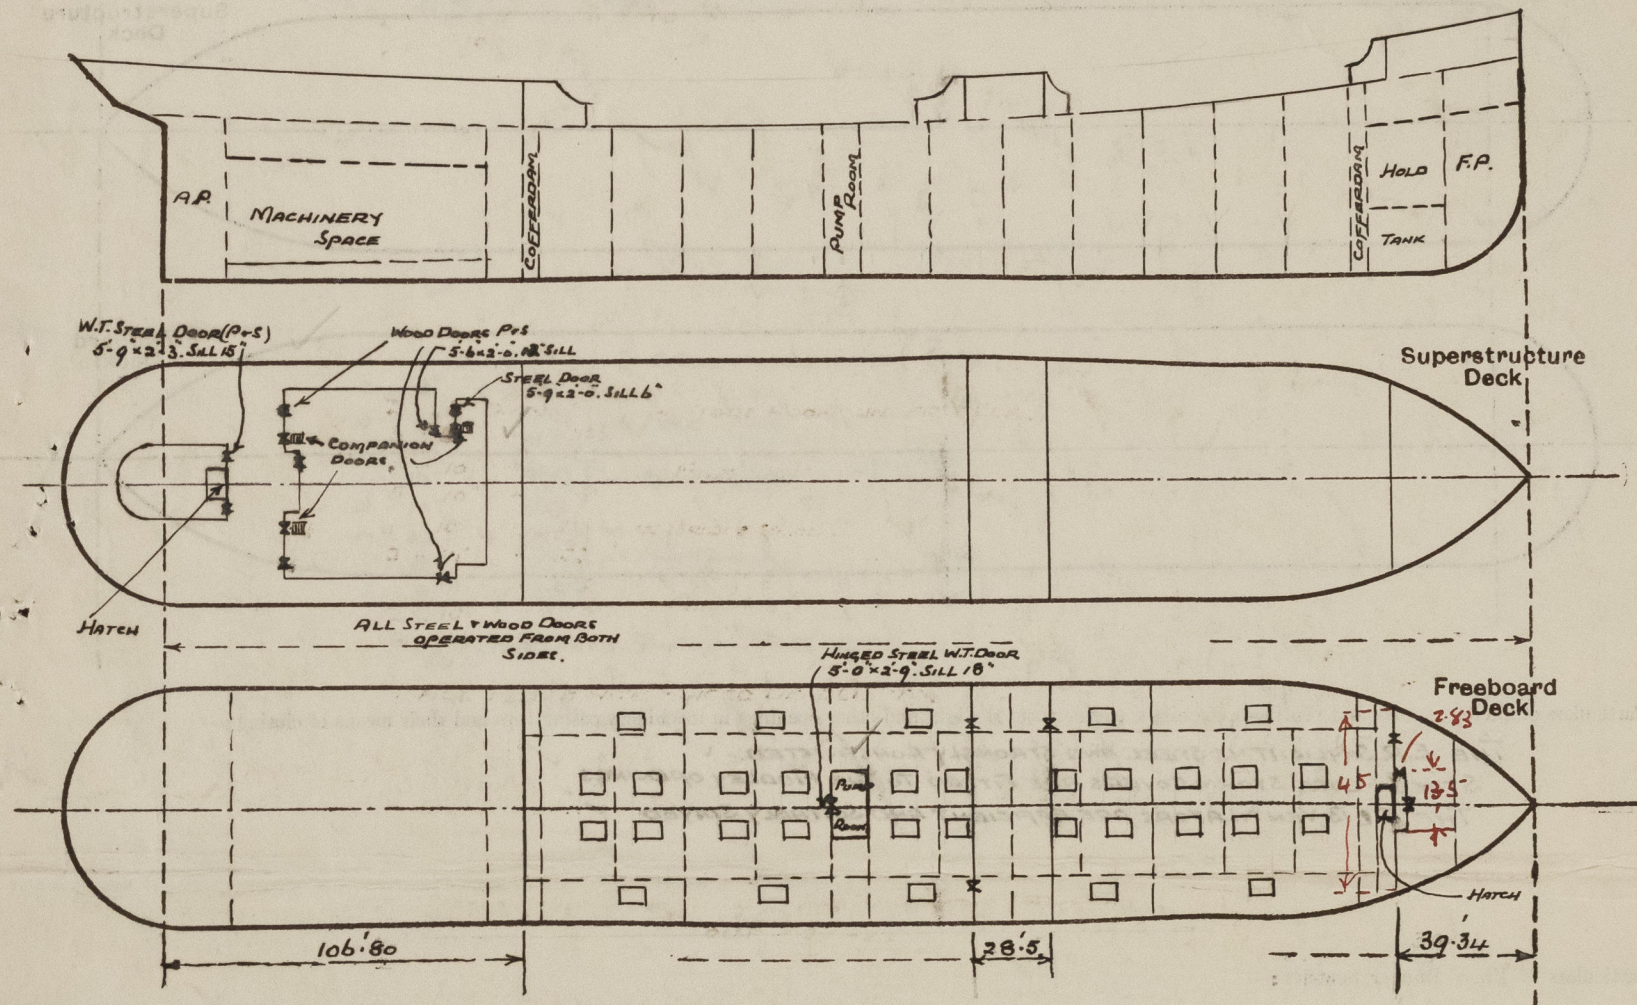 A.P.
MACHINERY
SPACE
COFFERDAM
PUMP
ROOM
COFFERDAM
HOLD
TANK
F.P.
W.T. STEEL DOOR (P&S)
5'-9"x2'-3". SILL 15"
WOOD DOORS P&S
5'-6"x2'-0". SILL
STEEL DOOR
5'-9"x2'-0". SILL 6"
COMPANION
DOORS.
Superstructure
Deck
HATCH
ALL STEEL & WOOD DOORS
OPERATED FROM BOTH
SIDES.
HINGED STEEL W.T. DOOR
5'-0"x2'-9". SILL 18"
Freeboard
Deck
2.83
45
13.5
PUMP
ROOM
HATCH
106'.80
28'.5
39'.34